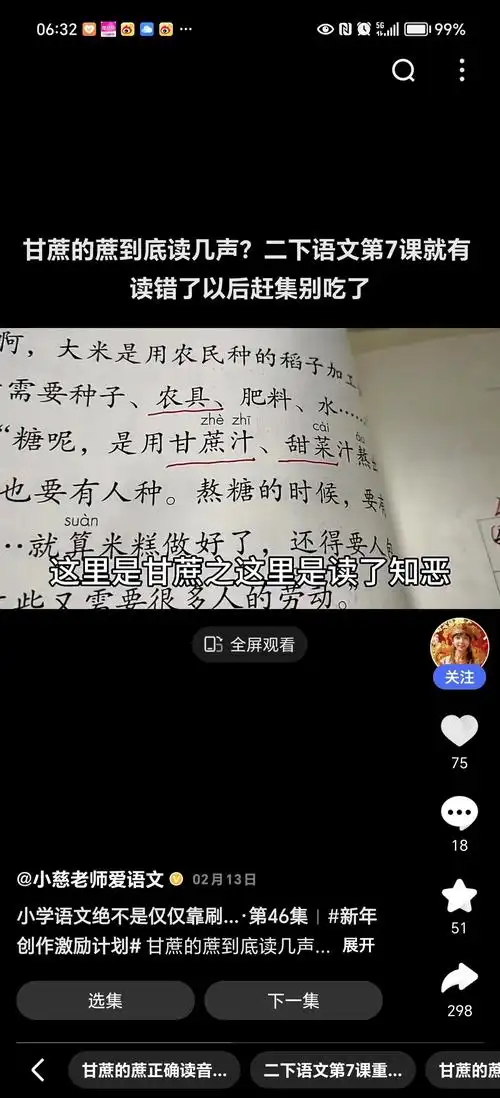 06:32
5G
99%
甘蔗的蔗到底读几声？二下语文第7课就有
读错了以后赶集别吃了
啊，大米是用农民种的稻子加工
需要种子、农具、肥料、水……
zhè zhī
cài
“糖呢，是用甘蔗汁、甜菜汁熬出
也要有人种。熬糖的时候，要有
suàn
…就算米糕做好了，还得要人包
这里是甘蔗之这里是读了知恶
些又需要很多人的劳动。”
全屏观看
关注
75
18
@小慈老师爱语文 02月13日
51
小学语文绝不是仅仅靠刷...·第46集 | #新年
创作激励计划# 甘蔗的蔗到底读几声... 展开
298
选集
下一集
甘蔗的蔗正确读音...
二下语文第7课重...
甘蔗的蔗